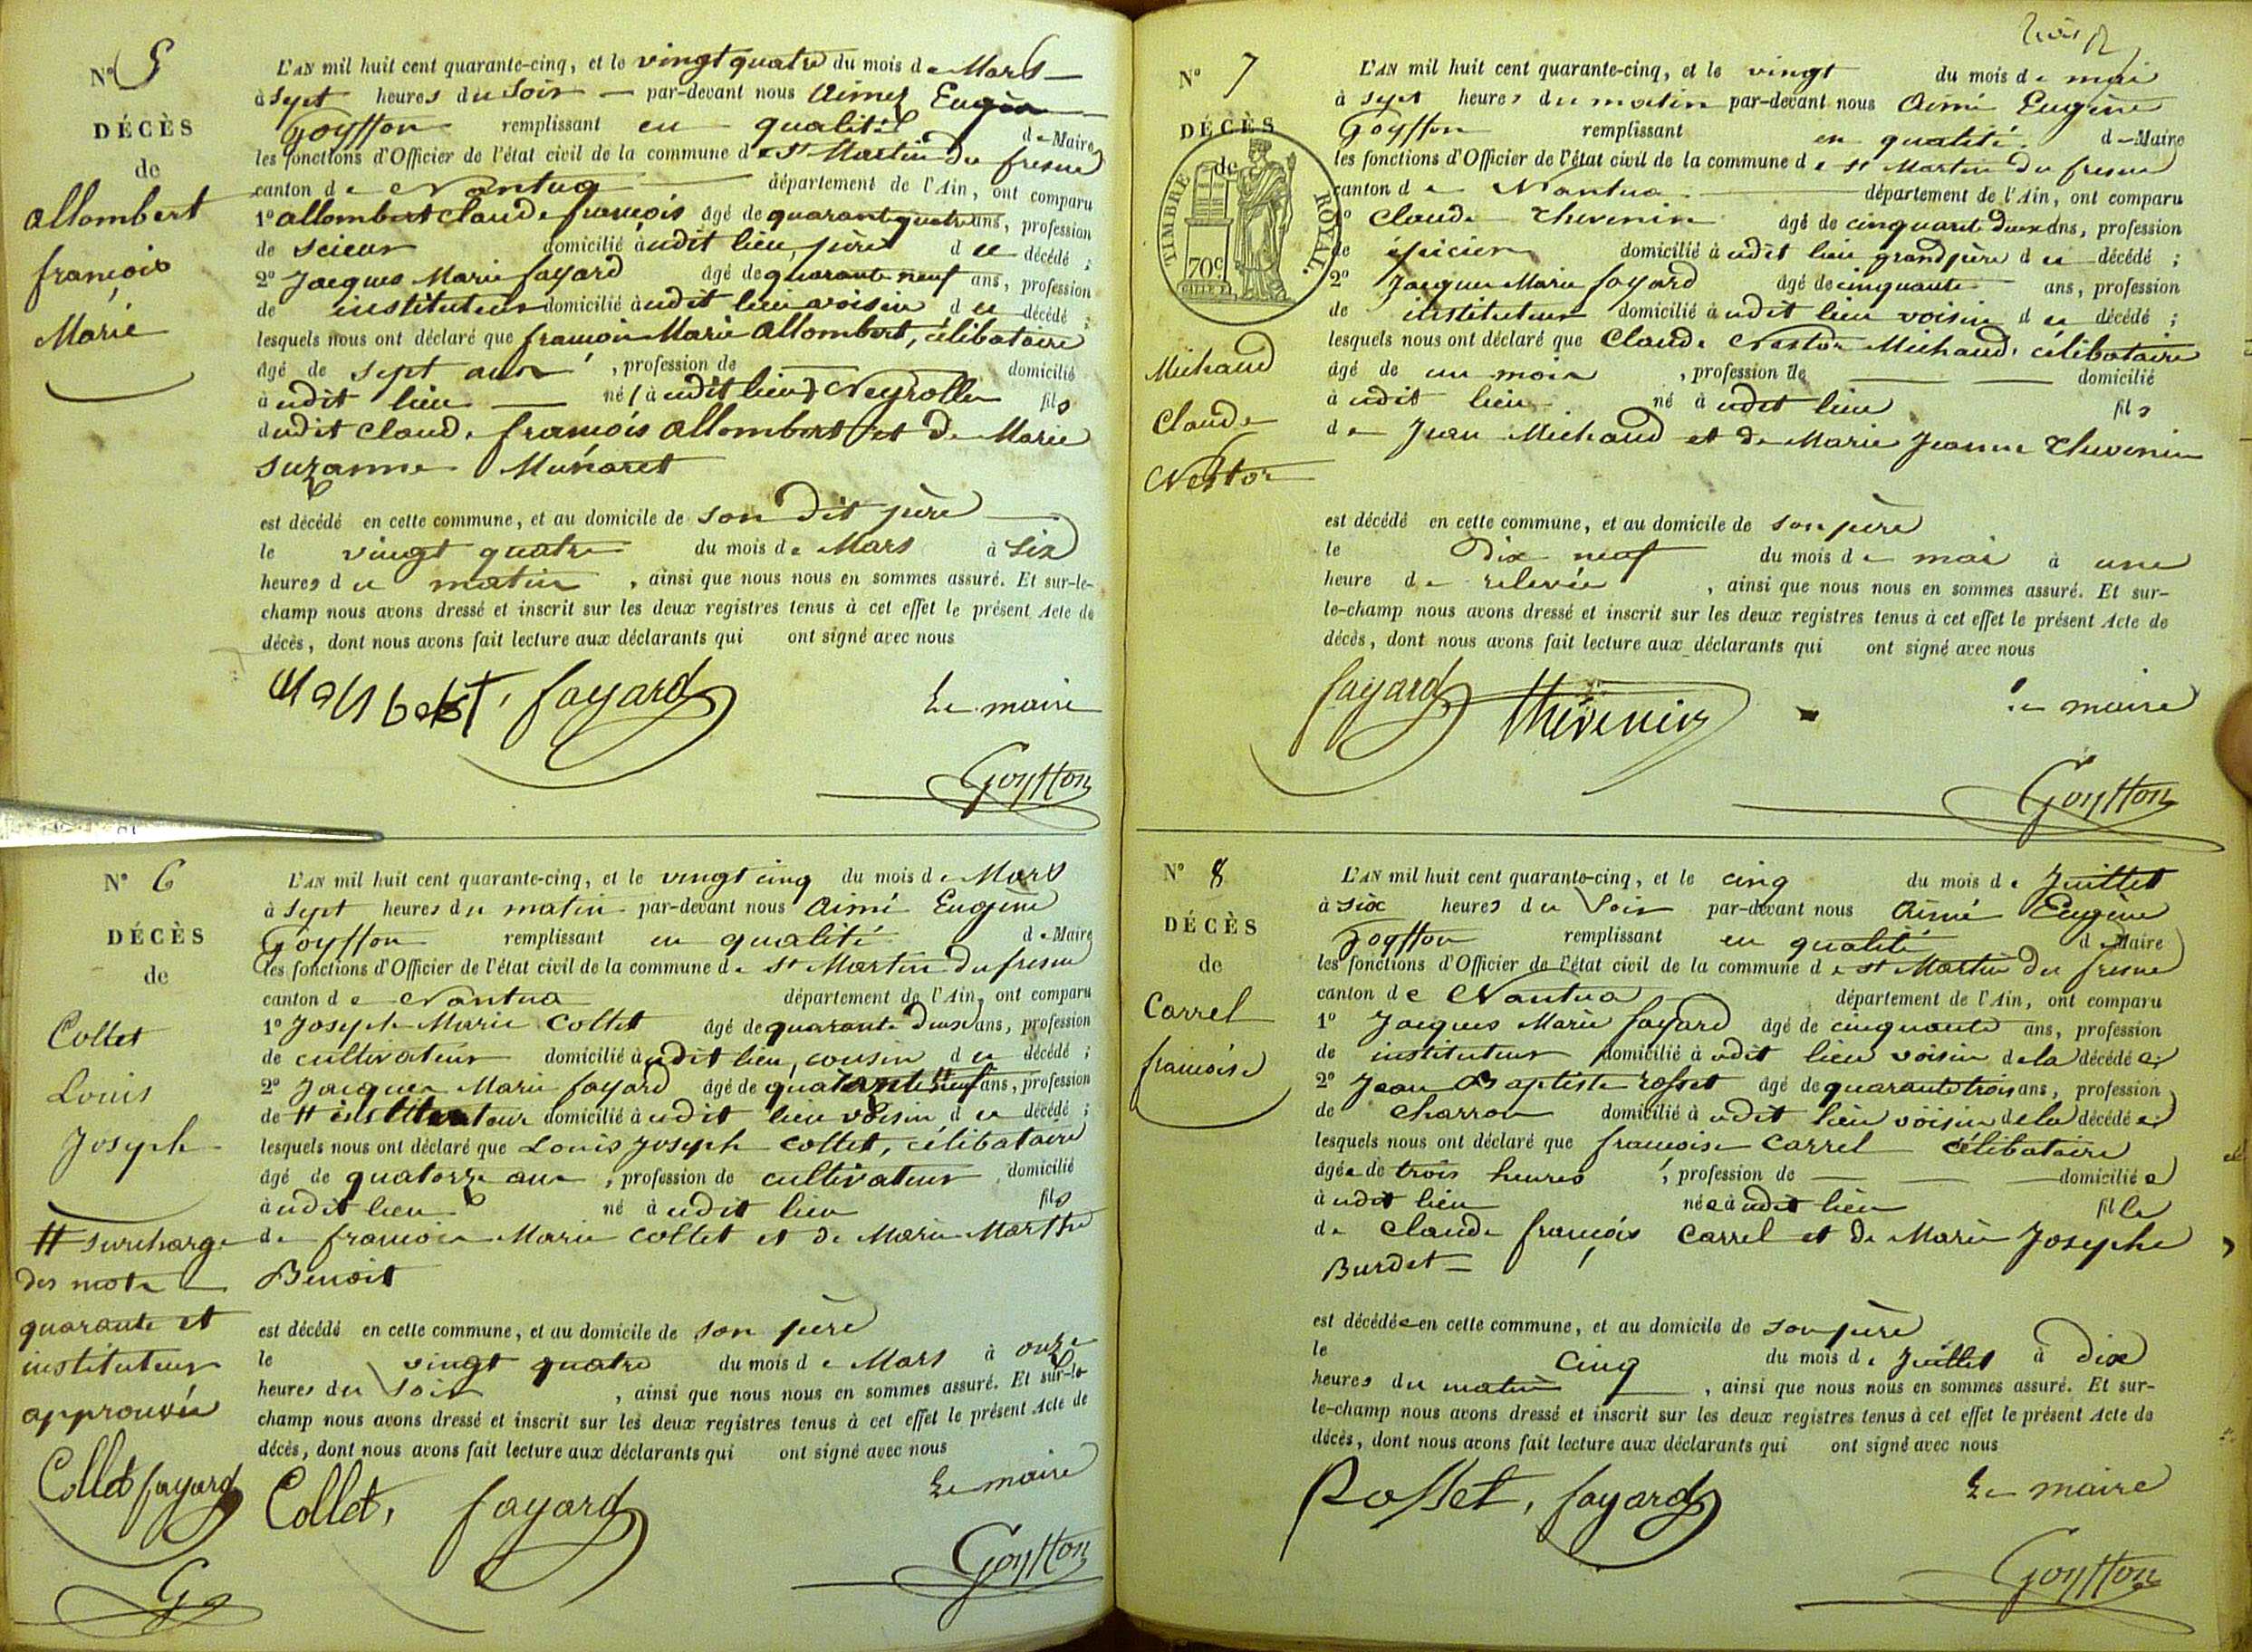 N° 5
DÉCÈS
de
Allombert
françois
Marie
L'AN mil huit cent quarante-cinq, et le vingt quatre du mois de Mars
à sept heures du soir par-devant nous Aimé Eugène
Goyffon remplissant en qualité de Maire
les fonctions d'Officier de l'état civil de la commune de St Martin du fresne
canton de Nantua département de l'Ain, ont comparu
1° allombert claude françois âgé de quarante quatre ans, profession
de scieur domicilié à udit lieu, père du décédé ;
2° Jacques Marie fayard âgé de quarante neuf ans, profession
de instituteur domicilié à udit lieu voisin du décédé ;
lesquels nous ont déclaré que françois Marie allombert, célibataire
âgé de sept ans , profession de domicilié
à udit lieu né (à udit lieu) Neyrolles fils
dudit claude françois allombert et de Marie
suzanne Munaret
est décédé en cette commune, et au domicile de son dit père
le vingt quatre du mois de Mars à six
heures du matin , ainsi que nous nous en sommes assuré. Et sur-le-
champ nous avons dressé et inscrit sur les deux registres tenus à cet effet le présent Acte de
décès, dont nous avons fait lecture aux déclarants qui ont signé avec nous
fayard Le maire
Goyffon
N° 6
DÉCÈS
de
Collet
Louis
Joseph
# surcharge
des mots
quarante et
instituteur
approuvée
Collet fayard
G
L'AN mil huit cent quarante-cinq, et le vingt cinq du mois de Mars
à sept heures du matin par-devant nous Aimé Eugène
Goyffon remplissant en qualité de Maire
les fonctions d'Officier de l'état civil de la commune de St Martin du fresne
canton de Nantua département de l'Ain, ont comparu
1° Joseph Marie Collet âgé de quarante deux ans, profession
de cultivateur domicilié à udit lieu, cousin du décédé ;
2° Jacques Marie fayard âgé de quarante neuf ans, profession
de # instituteur domicilié à udit lieu voisin du décédé ;
lesquels nous ont déclaré que Louis Joseph Collet, célibataire
âgé de quatorze ans , profession de cultivateur domicilié
à udit lieu né à udit lieu fils
de françois Marie Collet et de Marie Marthe
Benoit
est décédé en cette commune, et au domicile de son père
le vingt quatre du mois de Mars à onze
heures du soir , ainsi que nous nous en sommes assuré. Et sur-le-
champ nous avons dressé et inscrit sur les deux registres tenus à cet effet le présent Acte de
décès, dont nous avons fait lecture aux déclarants qui ont signé avec nous
Collet, fayard Le maire
Goyffon
N° 7
DÉCÈS
de
TIMBRE ROYAL.
70c
Michaud
Claude
Nestor
L'AN mil huit cent quarante-cinq, et le vingt du mois de mai
à sept heures du matin par-devant nous Aimé Eugène
Goyffon remplissant en qualité de Maire
les fonctions d'Officier de l'état civil de la commune de St Martin du fresne
canton de Nantua département de l'Ain, ont comparu
1° Claude Thevenin âgé de cinquante deux ans, profession
de épicier domicilié à udit lieu grand père du décédé ;
2° Jacques Marie fayard âgé de cinquante ans, profession
de instituteur domicilié à udit lieu voisin du décédé ;
lesquels nous ont déclaré que Claude Nestor Michaud, célibataire
âgé de un mois , profession de domicilié
à udit lieu né à udit lieu fils
de Jean Michaud et de Marie Jeanne Thevenin
est décédé en cette commune, et au domicile de son père
le Dix neuf du mois de mai à une
heure de relevée , ainsi que nous nous en sommes assuré. Et sur-
le-champ nous avons dressé et inscrit sur les deux registres tenus à cet effet le présent Acte de
décès, dont nous avons fait lecture aux déclarants qui ont signé avec nous
fayard Thévenin Le maire
Goyffon
N° 8
DÉCÈS
de
Carrel
françoise
L'AN mil huit cent quarante-cinq, et le cinq du mois de Juillet
à six heures du soir par-devant nous Aimé Eugène
Goyffon remplissant en qualité de Maire
les fonctions d'Officier de l'état civil de la commune de St Martin du fresne
canton de Nantua département de l'Ain, ont comparu
1° Jacques Marie fayard âgé de cinquante ans, profession
de instituteur domicilié à udit lieu voisin de la décédée ;
2° Jean Baptiste rosset âgé de quarante trois ans, profession
de charron domicilié à udit lieu voisin de la décédée ;
lesquels nous ont déclaré que françoise Carrel célibataire
âgée de trois heures , profession de domiciliée
à udit lieu née à udit lieu fille
de Claude françois Carrel et de Marie Josephe
Burdet
est décédée en cette commune, et au domicile de son père
le cinq du mois de Juillet à dix
heures du matin , ainsi que nous nous en sommes assuré. Et sur-
le-champ nous avons dressé et inscrit sur les deux registres tenus à cet effet le présent Acte de
décès, dont nous avons fait lecture aux déclarants qui ont signé avec nous
Rosset, fayard Le maire
Goyffon